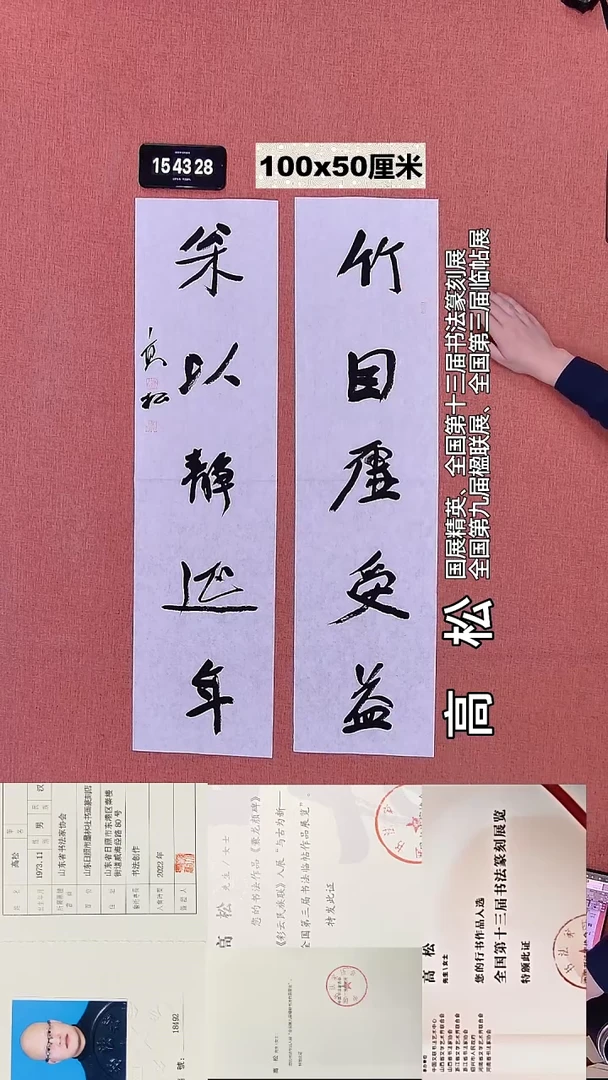 15 43 28
100x50厘米
竹因虚受益
枀以静延年
高松
高 松
国展精英、全国第十三届书法篆刻展
全国第九届楹联展、全国第三届临帖展
高松
1973.11 男 汉
山东省书法家协会
山东省日照市东港区秦楼
街道威海经路80号
书法创作
2022年
號: 18492
高 松 先生/女士
您的书法作品《爨龙颜碑》
《彩云民族联》入展“与古为新—
全国第三届书法临帖作品展览”。
特发此证
高 松
先生\女士
您的行书作品入选
全国第十三届书法篆刻展览
特颁此证